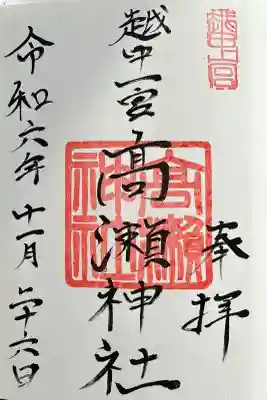 奉拝
越中一宮高瀬神社
越中一宮
高瀬神社
令和六年十一月二十六日